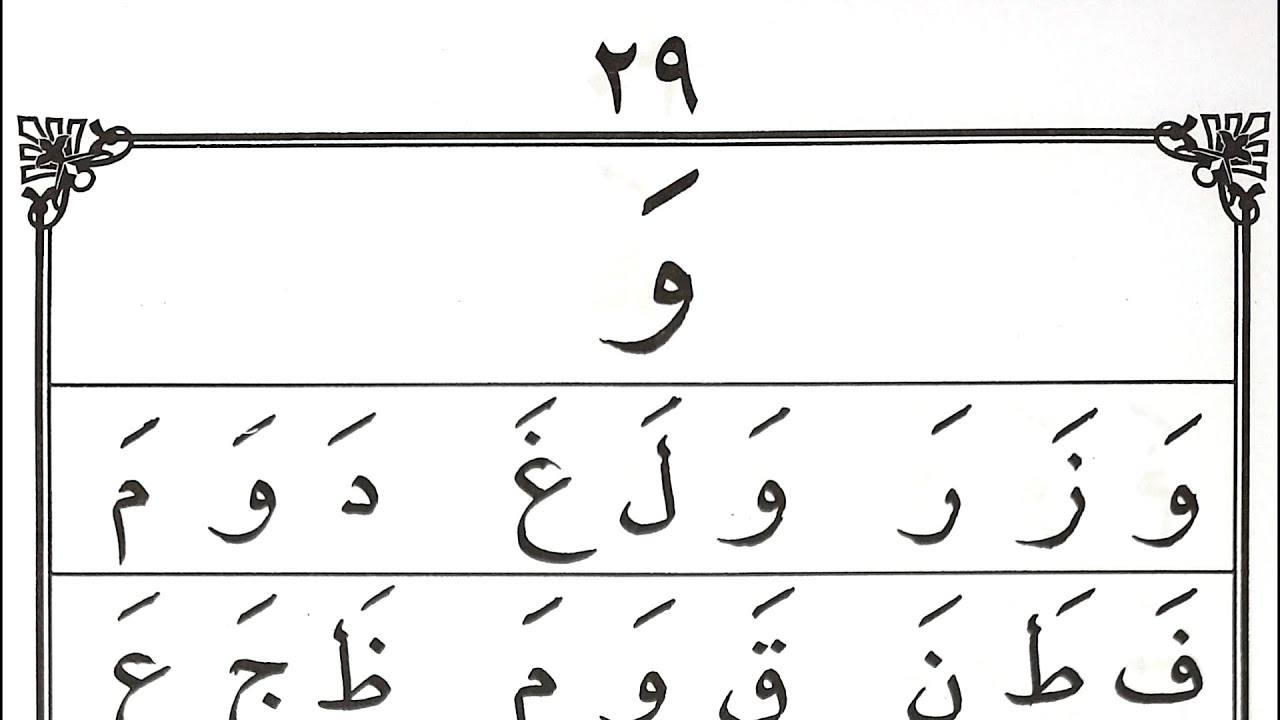 ٢٩
وَ
وَ زَ رَ وَ لَ غَ دَ وَ مَ
فَ طَ نَ قَ وَ مَ ظَ جَ عَ